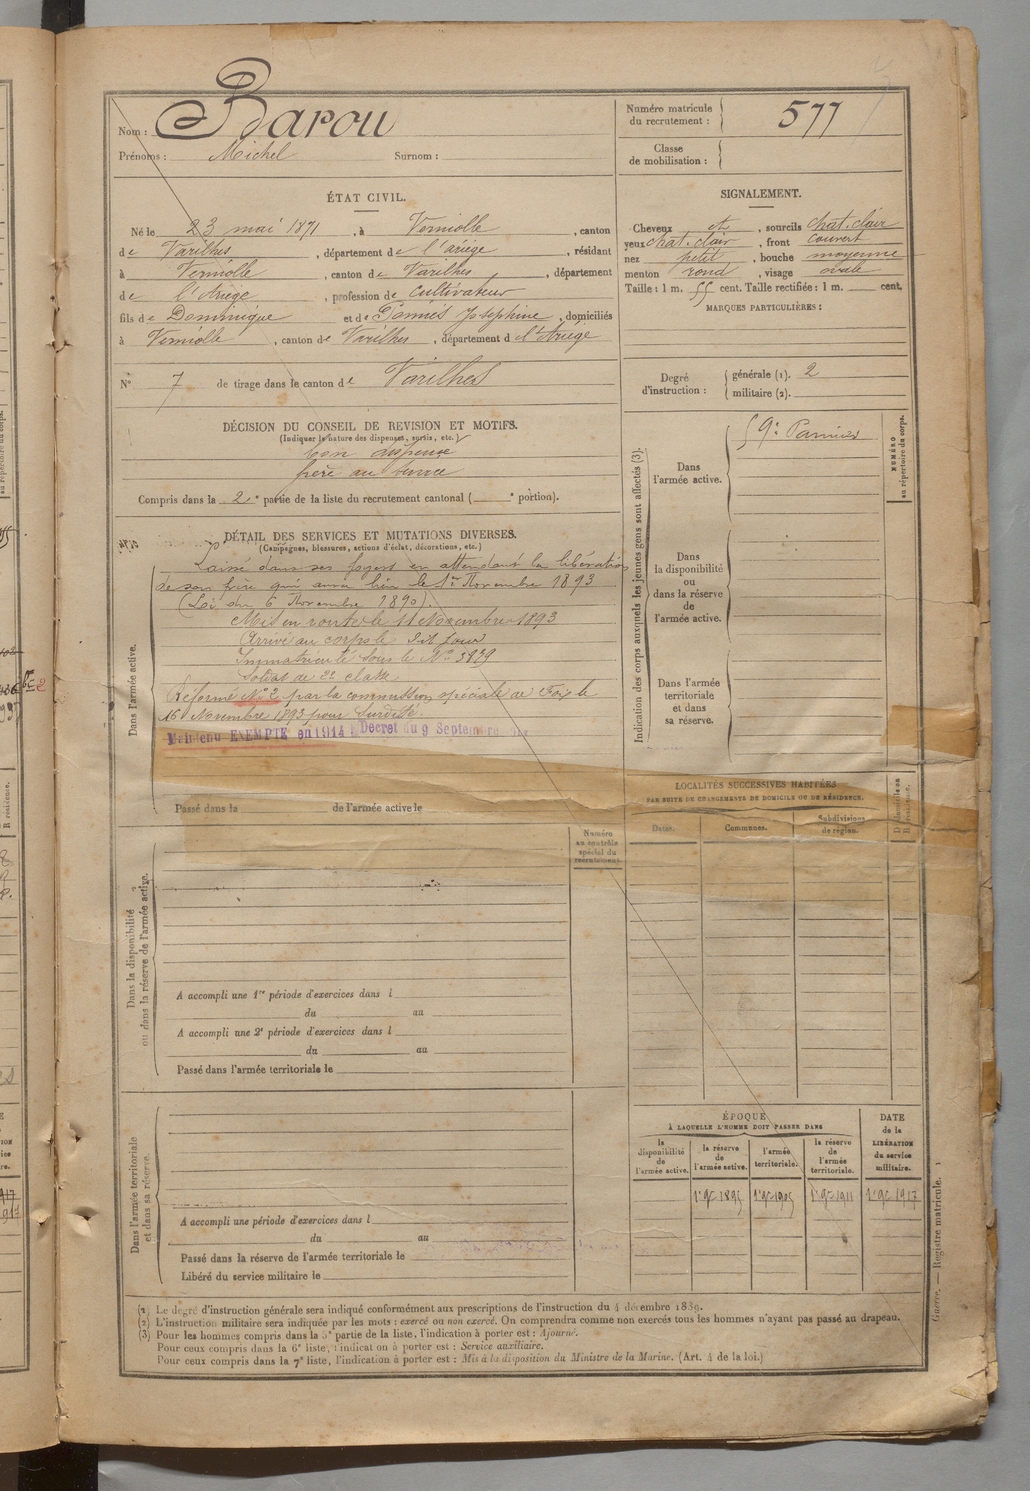 Nom : Barou
Prénoms : Michel Surnom :
Numéro matricule du recrutement : 577
Classe de mobilisation :
ÉTAT CIVIL.
Né le 23 mai 1871, à Verniolle, canton
de Varilhes, département de l'ariège, résidant
à Verniolle, canton de Varilhes, département
de l'Ariège, profession de Cultivateur
fils de Dominique et de Joséphine, domiciliés
à Verniolle, canton de Varilhes, département de l'Ariège
N° 7 de tirage dans le canton de Varilhes
SIGNALEMENT.
Cheveux et, sourcils chat. clair
yeux chat. clair, front couvert
nez petit, bouche moyenne
menton rond, visage ovale
Taille : 1 m. 55 cent. Taille rectifiée : 1 m. cent.
MARQUES PARTICULIÈRES :
Degré d'instruction :
générale (1). 2
militaire (2).
DÉCISION DU CONSEIL DE REVISION ET MOTIFS.
(Indiquer la nature des dispenses, sursis, etc.)
bon dispensé
frère au service
Compris dans la 2e partie de la liste du recrutement cantonal ( e portion).
DÉTAIL DES SERVICES ET MUTATIONS DIVERSES.
(Campagnes, blessures, actions d'éclat, décorations, etc.)
Dans l'armée active.
Laissé dans ses foyers en attendant la libération
de son frère qui aura lieu le 1er Novembre 1893
(Loi du 6 Novembre 1890).
Mis en route le 11 Novembre 1893
Arrivé au corps le dit jour
Immatriculé sous le N° 3829
Soldat de 2e classe
Réformé N° 2 par la commission spéciale de Foix le
16 Novembre 1893 pour Surdité.
Maintenu EXEMPTÉ en 1914 Décret du 9 Septembre
Passé dans la de l'armée active le
Indication des corps auxquels les jeunes gens sont affectés (3).
Dans l'armée active.
9e Pamiers
NUMÉRO au répertoire du corps.
Dans la disponibilité ou dans la réserve de l'armée active.
Dans l'armée territoriale et dans sa réserve.
LOCALITÉS SUCCESSIVES HABITÉES
PAR SUITE DE CHANGEMENTS DE DOMICILE OU DE RÉSIDENCE.
Dates. Communes. Subdivisions de région.
Numéro au contrôle spécial du recrutement.
Dans la disponibilité ou dans la réserve de l'armée active.
A accompli une 1re période d'exercices dans l
du au
A accompli une 2e période d'exercices dans l
du au
Passé dans l'armée territoriale le
Dans l'armée territoriale et dans sa réserve.
A accompli une période d'exercices dans l
du au
Passé dans la réserve de l'armée territoriale le
Libéré du service militaire le
ÉPOQUE
À LAQUELLE L'HOMME DOIT PASSER DANS
la disponibilité de l'armée active.
la réserve de l'armée active.
l'armée territoriale.
la réserve de l'armée territoriale.
DATE de la LIBÉRATION du service militaire.
1er 9e 1895 1er 9e 1905 1er 9e 1911 1er 9e 1917
(1) Le degré d'instruction générale sera indiqué conformément aux prescriptions de l'instruction du 4 décembre 1889.
(2) L'instruction militaire sera indiquée par les mots : exercé ou non exercé. On comprendra comme non exercés tous les hommes n'ayant pas passé au drapeau.
(3) Pour les hommes compris dans la 5e partie de la liste, l'indication à porter est : Ajourné.
Pour ceux compris dans la 6e liste, l'indication à porter est : Service auxiliaire.
Pour ceux compris dans la 7e liste, l'indication à porter est : Mis à la disposition du Ministre de la Marine. (Art. 4 de la loi.)
Guerre. — Registre matricule. 1